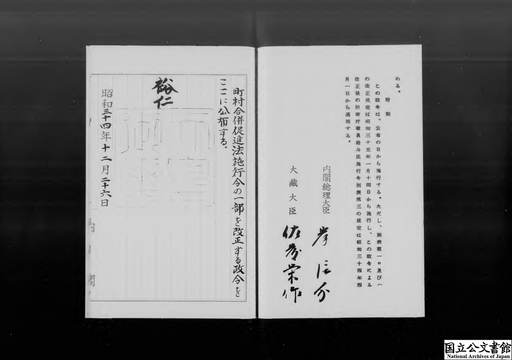 める。
附則
この政令は、公布の日から施行する。ただし、別表第一
の改正規定は昭和三十五年一月十四日から施行し、この政令による
改正後の
月一日から適用する。
内閣総理大臣 岸信介
大蔵大臣 佐藤栄作
町村合併促進法施行令の一部を改正する政令を
ここに公布する。
裕仁
昭和三十四年十二月二十六日
内閣
国立公文書館
National Archives of Japan